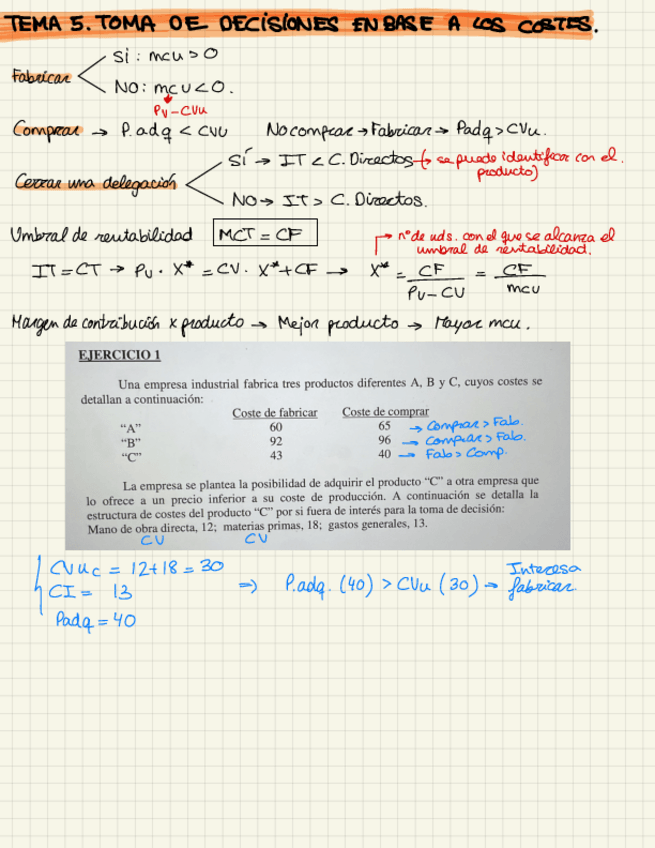 TEMA 5. TOMA DE DECISIONES EN BASE A LOS COSTES.
Fabricar
SI: mcu > 0
NO: mcu < 0.
Pv - CVu
Comprar → P.adq < CVU No comprar → Fabricar → Padq > CVu.
Cerrar una delegación
SÍ → IT < C. Directos (→ se puede identificar con el producto)
NO → IT > C. Directos.
Umbral de rentabilidad MCT = CF
nº de uds. con el que se alcanza el umbral de rentabilidad.
IT = CT → Pv · X* = CV · X* + CF → X* = CF / Pv - CU = CF / mcu
Margen de contribución x producto → Mejor producto → Mayor mcu.
EJERCICIO 1
Una empresa industrial fabrica tres productos diferentes A, B y C, cuyos costes se
detallan a continuación:
Coste de fabricar Coste de comprar
"A" 60 65 → Comprar > Fab.
"B" 92 96 → Comprar > Fab.
"C" 43 40 → Fab > Comp.
La empresa se plantea la posibilidad de adquirir el producto "C" a otra empresa que
lo ofrece a un precio inferior a su coste de producción. A continuación se detalla la
estructura de costes del producto "C" por si fuera de interés para la toma de decisión:
Mano de obra directa, 12; materias primas, 18; gastos generales, 13.
CU CU
CVuc = 12+18 = 30
CI = 13
Padq = 40
⇒ P.adq. (40) > CVu (30) → Interesa fabricar.